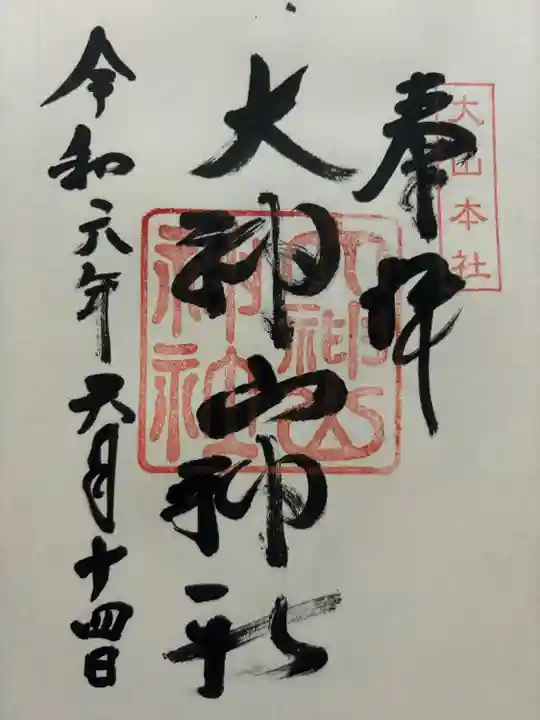 大山本社
奉拝
大神山神社
大神山神社
令和六年六月十四日